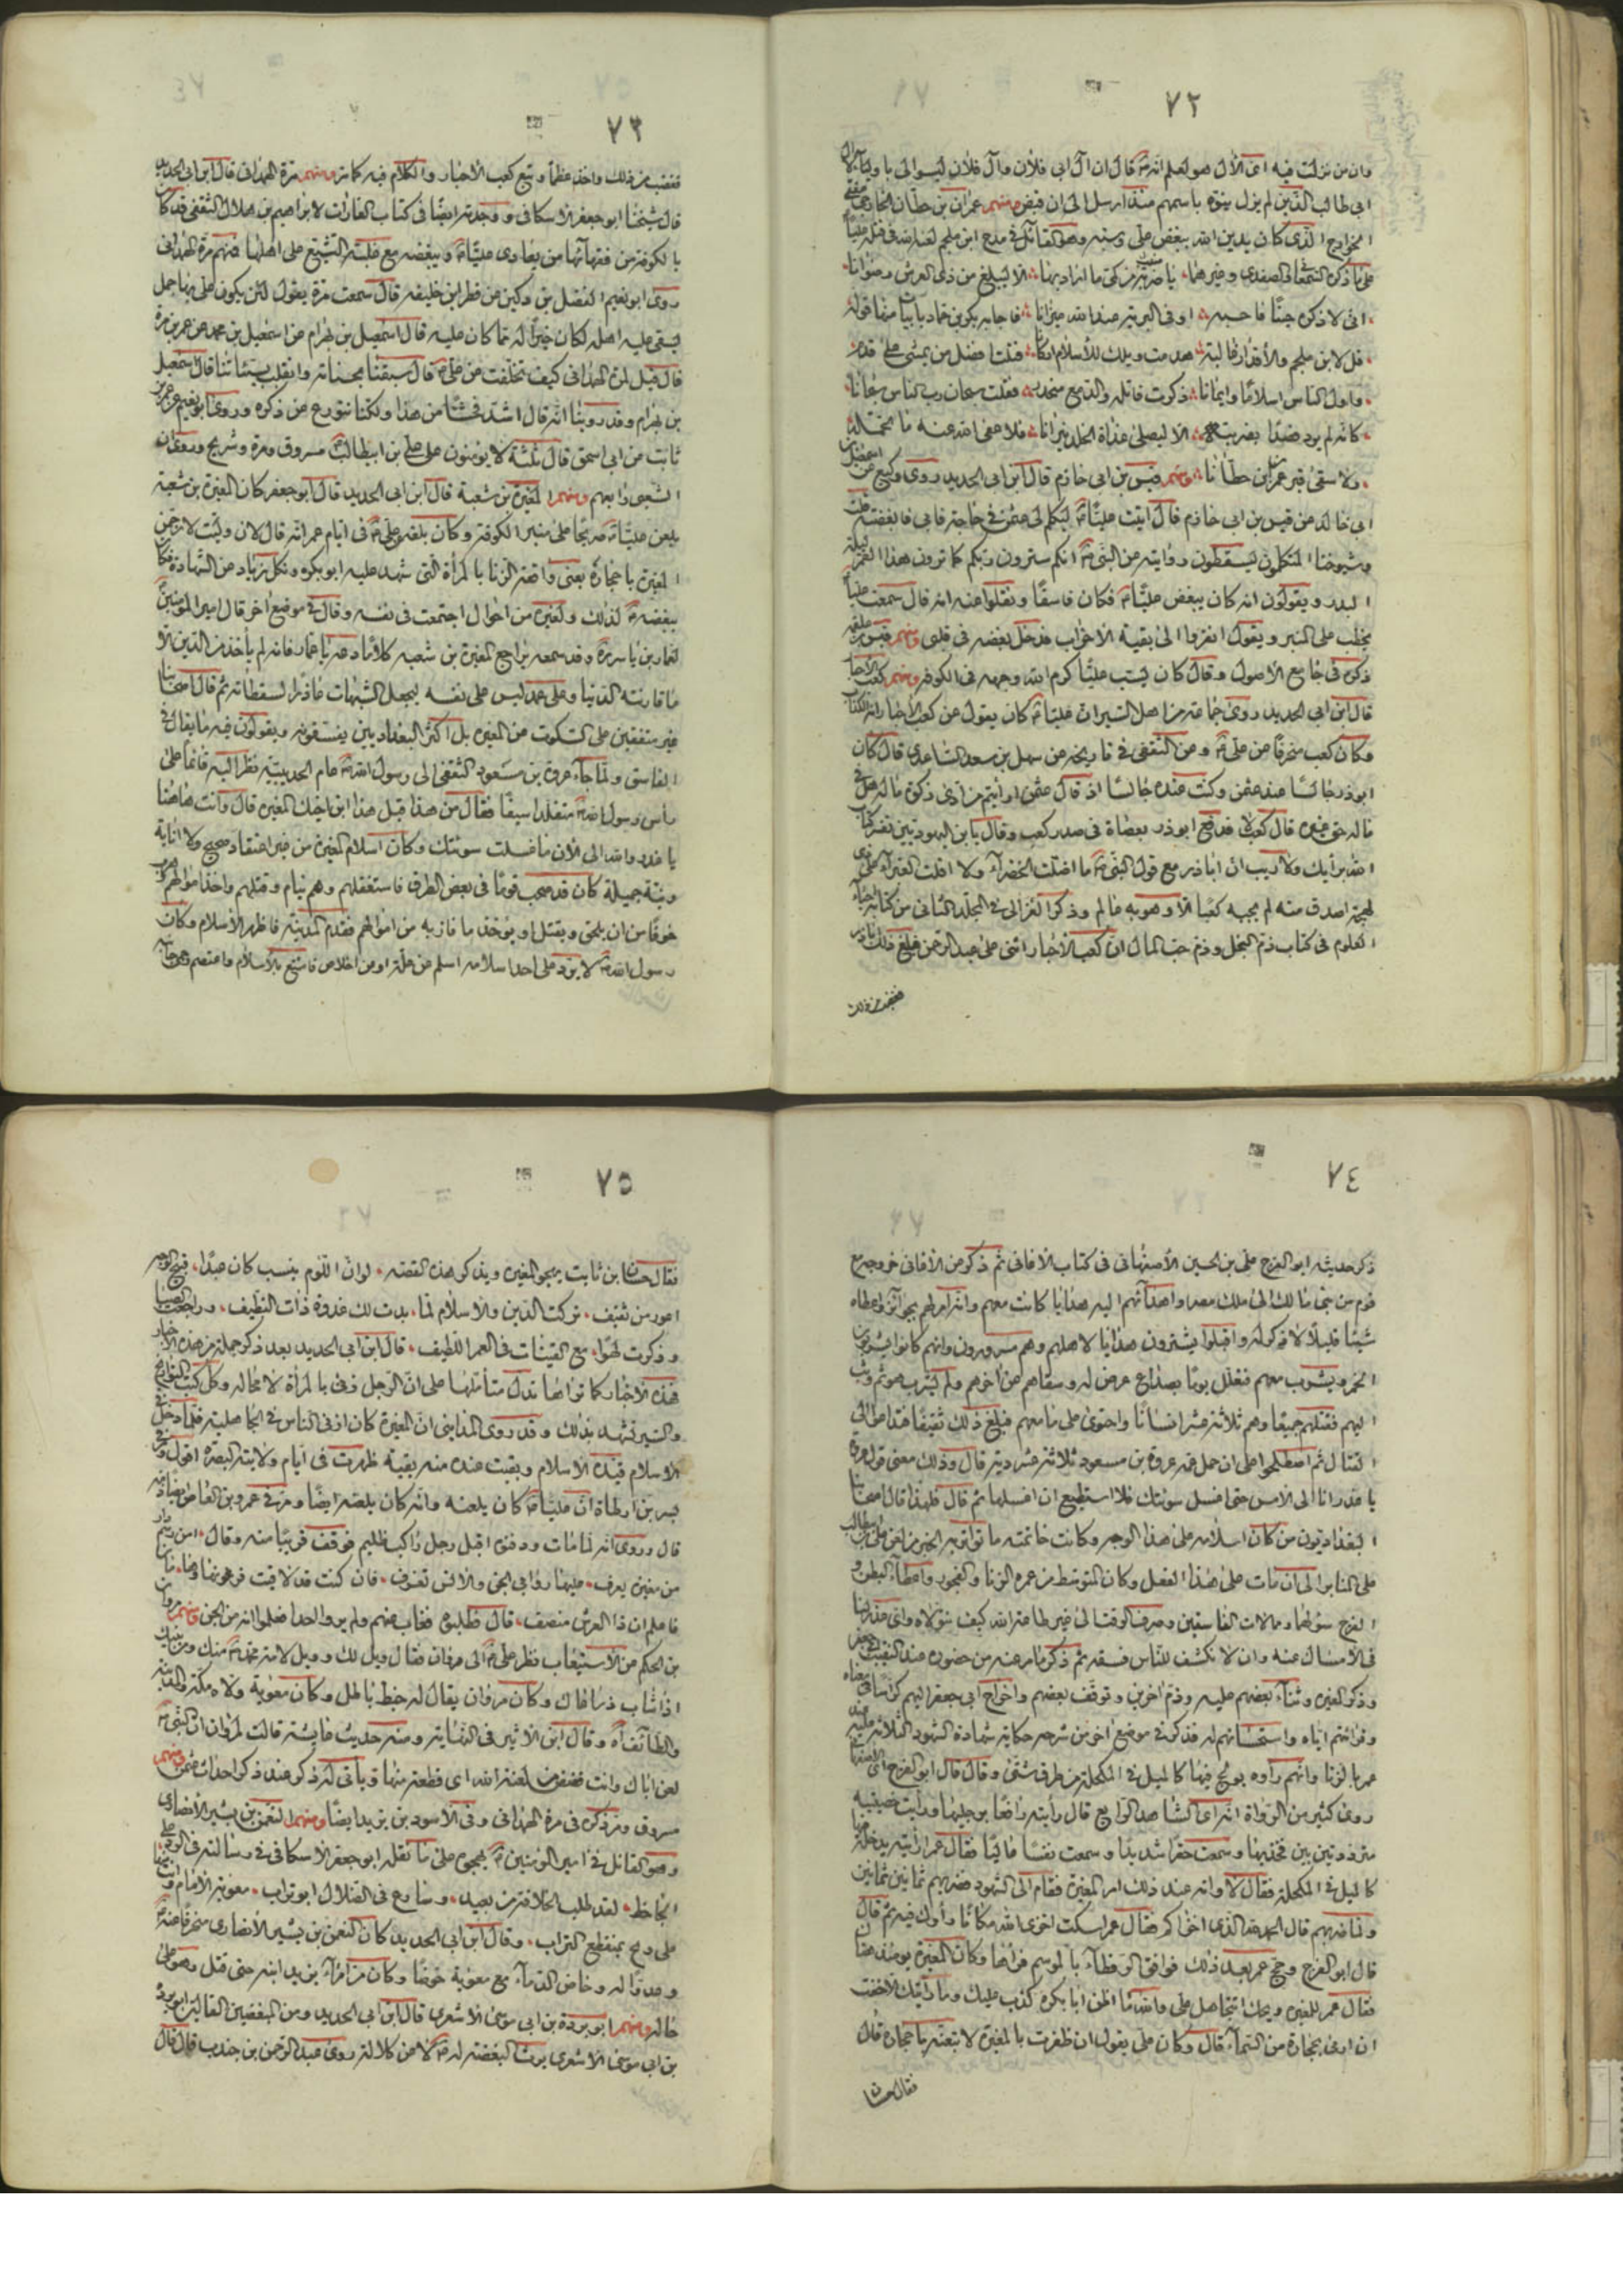 ٧٢
وان من نزلت فيه اعنى الأول هو لعلم انه قال ان آل ابي فلان وآل فلان ليسوا لي باولياء
ابي طالب الذين لم يزل ينوه باسمهم منذ ارسل الى ان قبض ومنهم عمران بن حطان الخارجي
الخوارج الذى كان يدين الله ببغض على وسبه وهو القائل في مدح ابن ملجم لعنه الله في قتله عليا
على ما ذكره السمعاني والصفدى وغيرهما يا ضربة من كمى ما اراد بها الا ليبلغ من ذى العرش رضوانا
انى لاذكره حينا فاحسبه اوفى البرية عند الله ميزانا فاجابه بكر بن حماد بابيات منها قوله
قل لابن ملجم والأقدار غالبة هدمت ويلك للأسلام اركانا قتلت افضل من يمشى على قدم
واول الناس اسلاما وايمانا ذكرت قاتله والدمع منحدر فقلت سبحان رب الناس سبحانا
كانه لم يرد قصدا بضربته الا ليصلى عذاب الخلد نيرانا فلا عفى الله عنه ما تحمله
ولا سقى قبر عمران بن حطانا ومنهم قيس بن ابي حازم قال ابن ابي الحديد روى وكيع عن اسمعيل بن
ابي خالد عن قيس بن ابي حازم قال اتيت عليا ليكلم لى عثمن في حاجة فابى فابغضته قلت
وشيوخنا المتكلمون يسقطون روايته عن النبي انكم سترون ربكم كما ترون هذا القمر ليلة
البدر ويقولون انه كان يبغض عليا فكان فاسقا ونقلوا عنه انه قال سمعت عليا
يخطب على المنبر ويقول انفروا الى بقية الاحزاب فدخل بغضه في قلبى ومنهم
ذكره في جامع الاصول وقال كان يسب عليا كرم الله وجهه في الكوفة ومنهم كعب الأحبار
قال ابن ابي الحديد روى جماعة من اهل السير ان عليا كان يقول عن كعب الأحبار انه لكذاب
وكان كعب منحرفا عن على وعن الثقفى في تاريخه عن سهل بن سعد الساعدى قال كان
ابو ذر جالسا عند عثمن وكنت عنده جالسا اذ قال عثمن ارأيتم من ادى زكوة ماله هل في
ماله حق غيره قال كعب لا فدفع ابو ذر بعصاه في صدر كعب وقال يا بن اليهوديين تفسر كتاب
الله برأيك ولا ريب ان اباذر مع قول النبي ما اظلت الخضراء ولا اقلت الغبراء على ذي
لهجة اصدق منه لم يجبه كعبا الا وهو به عالم وذكر الغزالى في المجلد الثاني من كتاب احياء
العلوم في كتاب ذم البخل وذم حب المال ان كعب الأحبار اثنى على عبد الرحمن فبلغ ذلك اباذر
فغضب من ذلك
٧٣
فغضب من ذلك واخذ عظما وتبع كعب الأحبار والكلام فيه كما تر ومنهم مرة الهمداني قال ابن ابي الحديد
قال شيخنا ابو جعفر الاسكافى ووجدته ايضا في كتاب الغارات لابراهيم بن هلال الثقفى قد كان
بالكوفة من فقهائها من يعادى عليا ويبغضه مع غلبة التشيع على اهلها فمنهم مرة الهمداني
روى ابو نعيم الفضل بن دكين عن فطر بن خليفه قال سمعت مرة يقول لئن يكون على بها جمل
يستقى عليه اهله لكان خيرا له مما كان عليه قال اسمعيل بن بهرام عن اسمعيل بن محمد عن عمرو بن مرة
قال قيل لمرة الهمداني كيف تخلفت عن على قال سبقنا بحسناته وانقلب بسيئاتنا قال اسمعيل
بن بهرام وقد روينا انه قال اشد فحشا من هذا ولكنا نتورع عن ذكره وروى ابو نعيم عن عمر بن
ثابت عن ابى اسحق قال ثلثة لا يؤمنون على على بن ابيطالب مسروق ومرة وشريح وروى ان
الشعبى رابعهم ومنهم المغيرة بن شعبة قال ابن ابي الحديد قال ابو جعفر كان المغيرة بن شعبة
يلعن عليا صريحا على منبر الكوفة وكان بلغه عن على في ايام عمر انه قال لان وليت لارجمن
المغيرة باحجاره يعنى واقعة الزنا بالمرأة التى شهد عليه ابو بكره ونكل زياد عن الشهادة فكان
يبغضه لذلك ولغيره من احوال اجتمعت في نفسه وقال في موضع اخر قال امير المؤمنين
لعمار بن ياسر وقد سمعه يراجع المغيرة بن شعبه كلاما دعه يا عمار فانه لم ياخذ من الدين الا
ما قاربته الدنيا وعلى عمد لبس على نفسه ليجعل الشبهات عاذرا لسقطاته ثم قال اصحابنا
غير متفقين على السكوت عن المغيره بل اكثر البغداديين يفسقونه ويقولون فيه ما يقال في
الفاسق ولما جاء عروة بن مسعود الثقفى الى رسول الله عام الحديبية نظر اليه قائما على
رأس رسول الله متقلدا سيفا فقال من هذا قيل هذا ابن اخيك المغيره قال وانت هاهنا
يا غدر والله الى الأن ما غسلت سوئتك وكان اسلام المغيرة من غير اعتقاد صحيح ولا انابة
ونية جميلة كان قد صحب قوما في بعض الطرق فاستغفلهم وهم نيام وقتلهم واخذ اموالهم وهرب
خوفا من ان يلحق ويقتل او يؤخذ ما فاز به من اموالهم فقدم المدينة فاظهر الأسلام وكان
رسول الله لا يرد على احد اسلامه اسلم عن علة او عن اخلاص فامتنع بالأسلام واعتصم
٧٤
ذكر حديثه ابو الفرج على بن الحسين الأصبهانى في كتاب الاغانى ثم ذكر عن الأغانى خروجه مع
قوم من بنى مالك الى ملك مصر واهدائهم اليه هدايا كانت معهم وانه امر لهم بجوائز واعطاه
شيئا قليلا لا ذكر له واقبلوا يشترون هدايا لاهلهم وهم مسرورون وانهم كانوا يشربون
الخمر ويشرب معهم فتعلل يوما بصداع عرض له وسقاهم عن اخرهم ولم يشرب هو ثم وثب
اليهم فقتلهم جميعا وهم ثلاثة عشر انسانا واحتوى على ما معهم فبلغ ذلك ثقيفا فتداعوا الى
القتال ثم اصطلحوا على ان حمل عمه عروة بن مسعود ثلاثة عشر دية قال وذلك معنى قول عروة
يا غدر انا الى الامس حتى اغسل سوئتك فلا استطيع ان اغسلها ثم قال فلهذا قال اصحابنا
البغداديون من كان اسلامه على هذا الوجه وكانت خاتمته ما تواتر به الخبر من لعن على بن ابيطالب
على المنابر الى ان مات على هذا الفعل وكان المتوسط من عمره الزنا والفجور واعطاء البطن و
الفرج سؤلهما وممالات الفاسقين وصرف الوقت الى غير طاعة الله كيف نتولاه واى عذر لنا
في الامساك عنه وان لا نكشف للناس فسقه ثم ذكر ما مر عنه من حضوره عند النقيب ابى جعفر
وذكر المغيره وثناء بعضهم عليه وذم اخرين وتوقف بعضهم واخراج ابى جعفر اليهم كراسا في معناه
وقرائتهم اياه واستحسانهم له فذكر في موضع اخر من شرحه حكاية شهادة الشهود الثلاثة عليه عند
عمر بالزنا وانهم رأوه يولج فيها كالميل في المكحلة من طرق شتى وقال قال ابو الفرج الاصفهانى
روى كثير من الرواة انه اى الشاهد الرابع قال رأيته رافعا برجليها ورأيت خصيتيه
مترددتين بين فخذيها وسمعت حفزا شديدا وسمعت نفسا عاليا فقال عمر ارايته يدخله فيها
كالميل في المكحلة فقال لا وانه عند ذلك امر المغيرة فقام الى الشهود فضربهم ثمانين ثمانين
ولما ضربهم قال الحمد لله الذى اخزاكم فقال عمر اسكت اخزى الله مكانا رأوك فيه ثم قال
قال ابو الفرج وحج عمر بعد ذلك فوافق الرقطاء بالموسم فراها وكان المغيرة يومئذ هناك
فقال عمر للمغيره ويحك اتتجاهل على والله ما اظن ابا بكره كذب عليك وما رأيتك الا خفت
ان ارمى بحجارة من السماء قال وكان على يقول ان ظفرت بالمغيرة لا تبعته باحجاره قال
فقال حسان
٧٥
فقال حسان بن ثابت يهجو المغيره ويذكر هذه القصه لو ان اللؤم ينسب كان عبدا قبيح الوجه
اعور من ثقيف تركت الدين والاسلام لما بدت لك غدوة ذات النصيف وراجعت الصبا
وذكرت لهوا مع القينات في العمر اللطيف قال ابن ابي الحديد بعد ذكر جملة من هذه الأخبار
هذه الأخبار كما تراها تدل متأملها على ان الرجل زنى بالمرأة لا محاله وكل كتب التواريخ
والسير تشهد بذلك وقد روى المدائنى ان المغيرة كان ازنى الناس في الجاهلية فلما دخل في
الاسلام قيده الاسلام وبقيت عنده منه بقية ظهرت في ايام ولايته البصره اقول
بسر بن ارطاة ان عليا كان يلعنه وانه كان يلعنه ايضا ومر في عمرو بن العاص
قال وروى انه لما مات ودفنوه اقبل رجل راكب ظليم فوقف قريبا منه وقال امن رسم دار
من مغيرة يعرف عليها روابى الجن والانس تعرف فان كنت قد لاقيت فرعون بعدنا وهامان
فاعلم ان ذا العرش منصف قال فطلبوه فغاب عنهم ولم يروا احدا فعلموا انه من الجن ومنهم مروان
بن الحكم عن الأستيعاب نظر على الى مروان فقال ويل لك وويل لامة محمد منك ومن بنيك
اذا شاب ذراعاك وكان مروان يقال له خيط باطل وكان معوية ولاه مكة والمدينة
والطائف اه وقال ابن الأثير في النهاية ومنه حديث عايشة قالت لمروان ان النبي
لعن اباك وانت فضض من لعنة الله اى قطعة منها ويأتى له ذكر عند ذكر احداث عثمن ومنهم
مسروق ومر ذكره في مرة الهمدانى وفي الأسود بن يزيد ايضا ومنهم النعمن بن بشير الأنصارى
وهو القائل في امير المؤمنين يهجوه على ما نقله ابو جعفر الاسكافى في رسالته في الرد على
الجاحظ لقد طلب الخلافة من بعيد وسارع في الضلال ابو تراب معوية الأمام وانت منها
على وتح بمنقطع التراب وقال ابن ابي الحديد كان النعمن بن بشير الأنصارى منحرفا عنه
وعدوا له وخاض الدماء مع معوية خوضا وكان من امراء يزيد ابنه حتى قتل وهو على
حاله ومنهم ابو بردة بن ابي موسى الاشعرى قال ابن ابي الحديد ومن المبغضين القالين ابو بردة
بن ابي موسى الاشعرى يرث البغضة له لا عن كلالة روى عبد الرحمن بن جندب قال قال